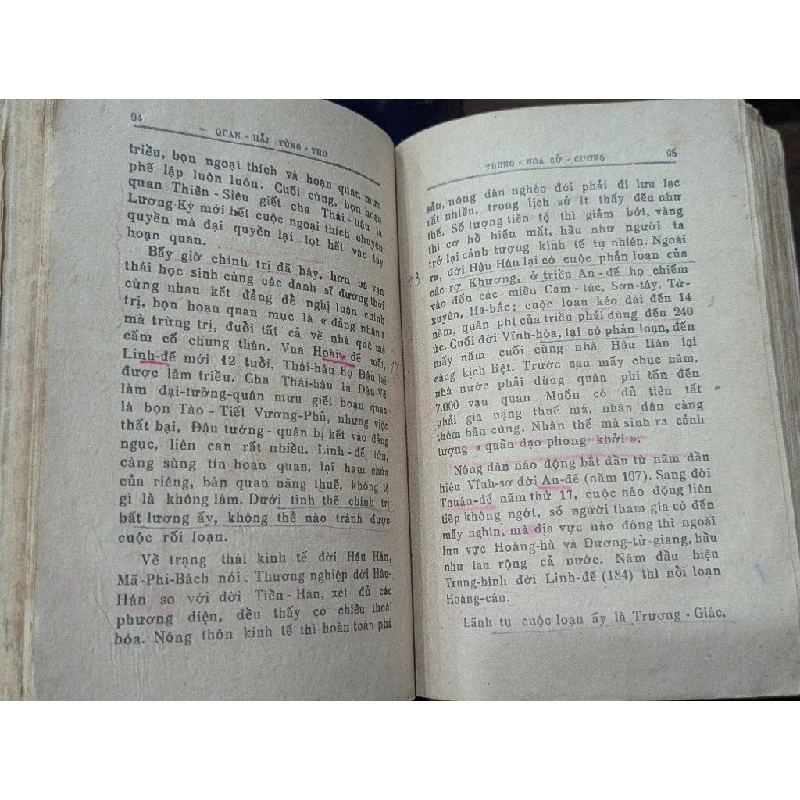 94
QUAN - HẢI TÙNG - THƯ
triều, bọn ngoại thích và hoạn quan mưu
phế lập luôn luôn. Cuối cùng, bọn hoạn
quan Thiên - Siêu giết cha Thái-hậu là
Lương-Ký mới hết cuộc ngoại thích chuyên
quyền mà đại quyền lại lọt hết vào tay
hoạn quan.
Bấy giờ chính trị đã hãy, hơn ba vạn
thái học sinh cùng các danh sĩ đương thời
cùng nhau kết đảng để nghị luận chính
trị, bọn hoạn quan mục là « đảng nhân»
mà trừng trị, đuổi tất cả về nhà quê mà
cấm cố chung thân. Vua Hoàn đế mất,
Linh-đế mới 12 tuổi. Thái-hậu họ Đậu lại
được lâm triều. Cha Thái-hậu là Đậu-Vũ
làm đại-tướng-quân mưu giết hoạn quan
là bọn Tào - Tiết Vương-Phủ, nhưng việc
thất bại, Đậu tướng - quân bị kết vào đảng
ngục, liên can rất nhiều. Linh - đế lớn,
càng sùng tín hoạn quan, lại ham chứa
của riêng, bán quan nặng thuế, không
gì là không làm. Dưới tình thế chính trị
bất lương ấy, không thể nào tránh được
cuộc rối loạn.
Về trạng thái kinh tế đời Hậu Hán,
Mã-Phi-Bách nói : Thương nghiệp đời Hậu-
Hán so với đời Tiền - Hán, xét đủ các
phương diện, đều thấy có chiều thoái
hóa. Nông thôn kinh tế thì hoàn toàn phá
TRUNG - HOA SỬ - CƯƠNG
95
sản, nông dân nghèo đói phải đi lưu lạc
rất nhiều, trong lịch sử ít thấy đều như
thế. Số lượng tiền tệ thì giảm bớt, vàng
thì cơ hồ hiếm mất, hầu như người ta
trở lại cảnh tượng kinh tế tự nhiên. Ngoài
ra, đời Hậu Hán lại có cuộc phản loạn của
các rợ Khương, ở triều An - đế họ chiếm
vào đến các miền Cam - túc, Sơn-tây, Tứ-
xuyên, Hà-bắc; cuộc loạn kéo dài đến 14
năm, quân phí của triều phải dùng đến 240
ức. Cuối đời Vĩnh-hòa, lại có phản loạn, đến
mấy năm cuối cùng nhà Hậu Hán lại
càng kịch liệt. Trước sau mấy chục năm,
nhà nước phải dùng quân phí tốn đến
7.000 vạn quan Muốn có đủ tiêu tất
phải gia nặng thuế má, nhân dân càng
thêm bần cùng. Nhân thế mà sinh ra cảnh
tượng « quần đạo phong khởi ».
Nông dân nào động bắt đầu từ năm đầu
hiệu Vĩnh-sơ đời An-đế (năm 107). Sang đời
Thuận-đế năm thứ 17, cuộc nào động liên
tiếp không ngớt, số người tham gia có đến
mấy nghìn, mà địa vực nào động thì ngoài
lưu vực Hoàng-hà và Dương-tử-giang, hầu
như lan rộng cả nước. Năm đầu hiệu
Trung-bình đời Linh-đế (184) thì nổi loạn
Hoàng-cân.
Lãnh tụ cuộc loạn ấy là Trương - Giác,